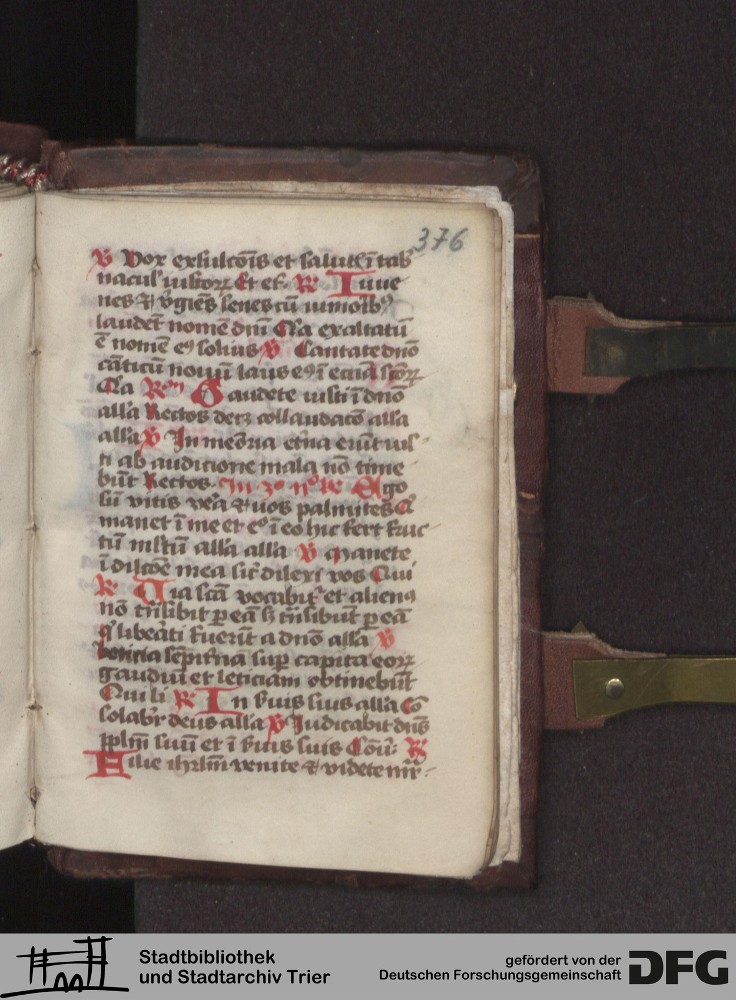 376
v Vox exsultc̄ōis et salutꝭ ī tab
nacul' iustorꝝ Et ef. R Iuue
nes ⁊ v̓gīes senes cū iuniorib9
laudēt nomē dn̄i Q̄a exaltatū
ē nomē e9 solius v Cantate dn̄o
cāticū nouū laus e9 ī ecc̄ia scōꝝ
Q̄a Rm Gaudete iusti ī dn̄o
all'a Rectos decꝫ collaudacō all'a
all'a v In mēoria etn̄a erūt ius
ti ab auditione mala nō time
būt Rectos. In 3o nō R Ego
sū vitis v̓a ⁊ uos palmites Q
manet ī me et e9 ī eo hic fert fruc
tū mltū all'a all'a v Manete
ī dilc̄ōe mea sic̄ dilexi vos Qui
R Via scā vocabit̄ et alien9
nō tn̄sibit ꝑ eā sꝫ tn̄sibūt ꝑ eā
q̄ lib̓ati fuerūt a dn̄o all'a v
leticia sēpit̓na suꝑ capita eoꝝ
gaudiū et leticiam obtinebūt
Qui li R In s̓uis suis all'a Co
solabr̄ deus all'a v Iudicabit dn̄s
pplm̄ suū et ī s̓uis suis Coū: R
Filie ih̓rlm̄ venite ⁊ videte mr̄
Stadtbibliothek
und Stadtarchiv Trier
gefördert von der
Deutschen Forschungsgemeinschaft
DFG